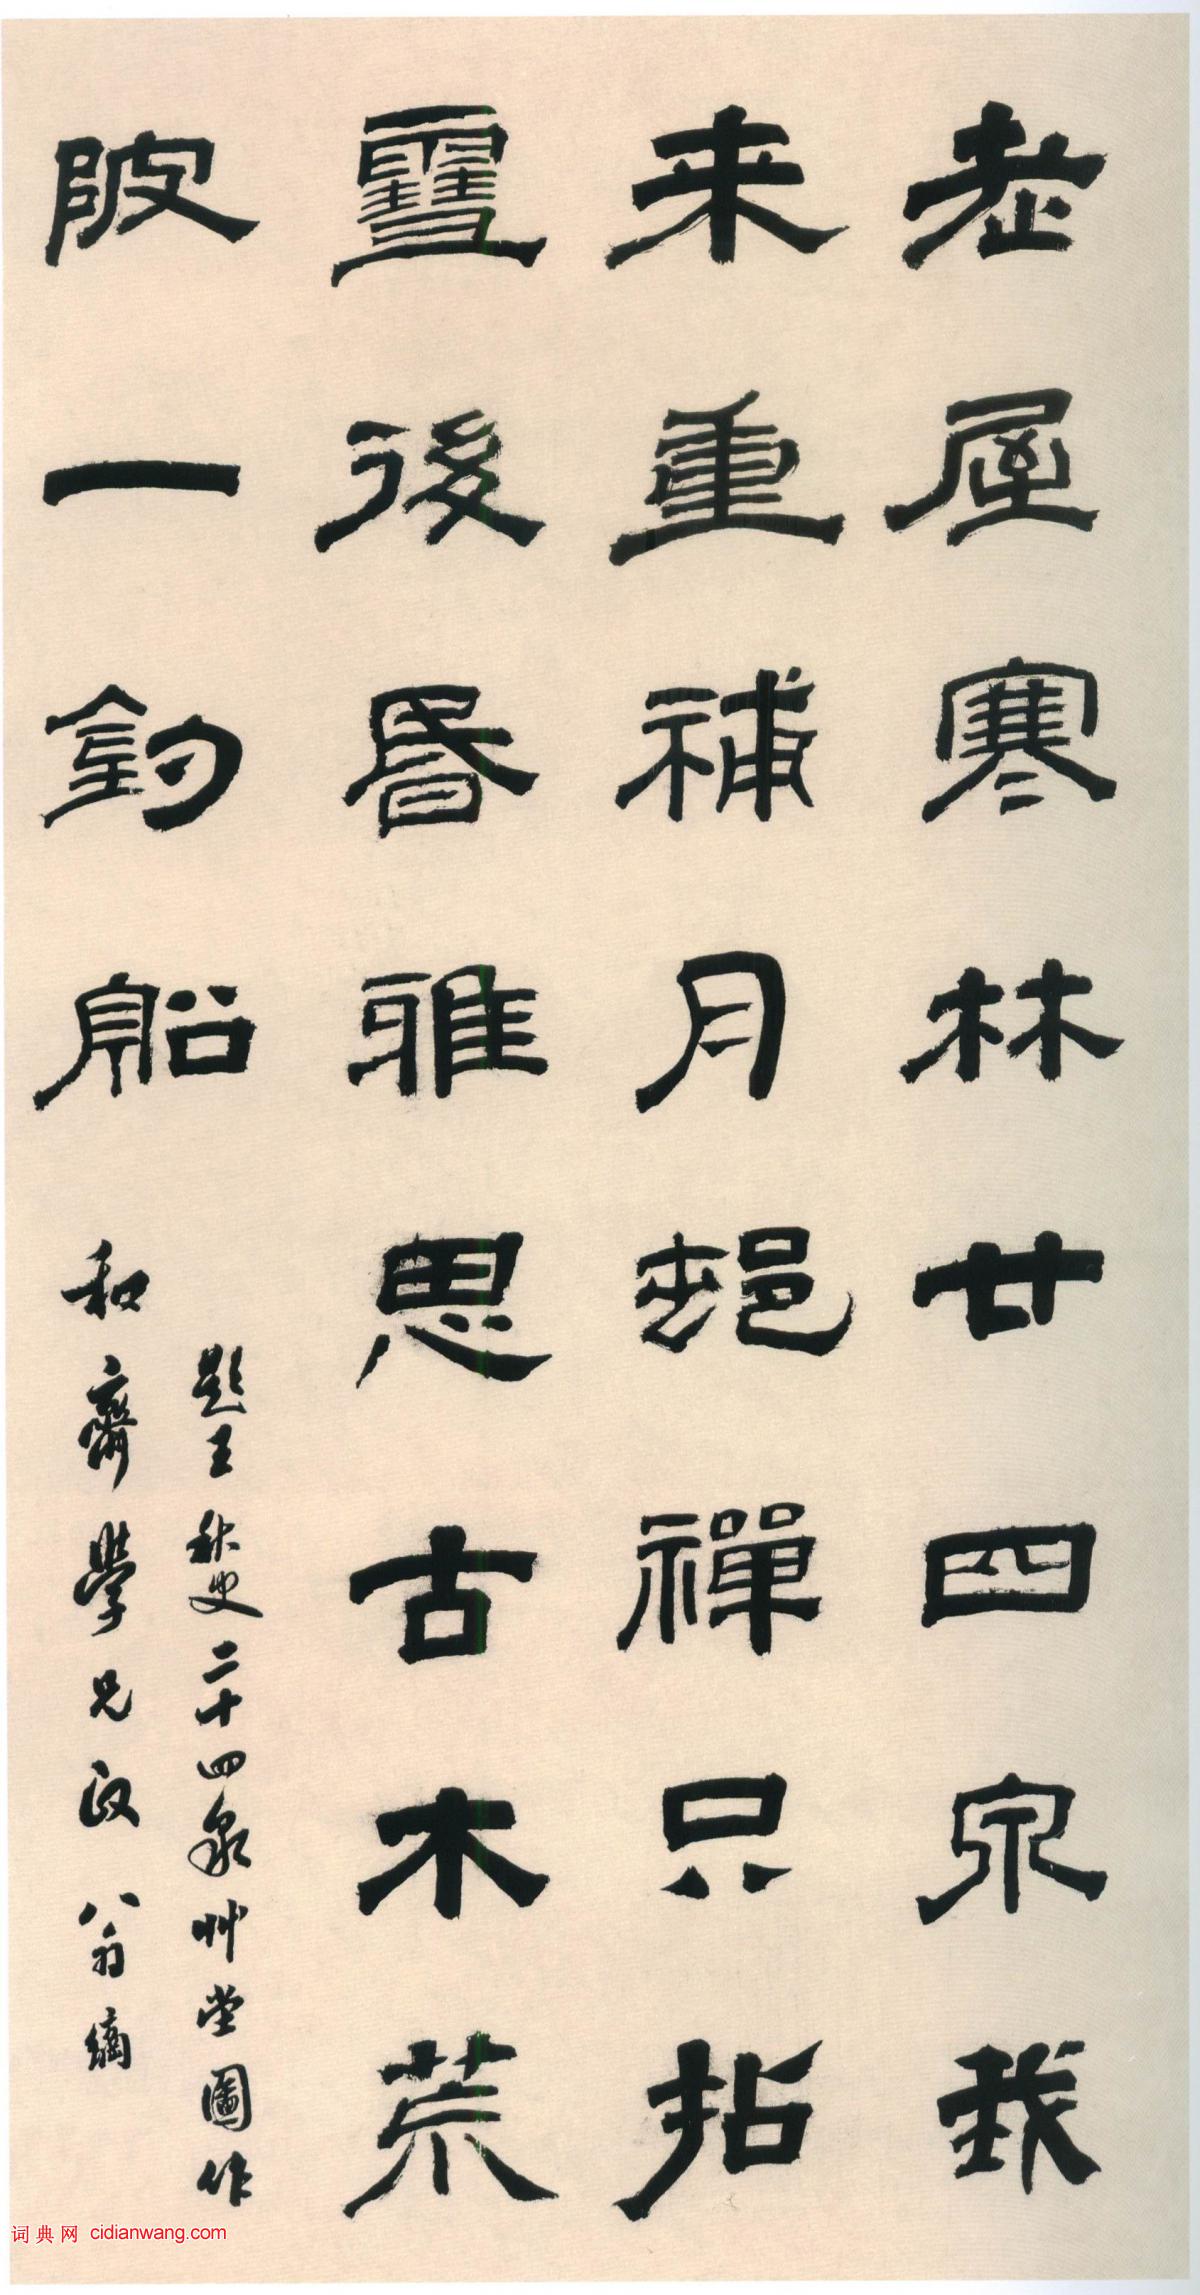 老屋寒林廿四泉我
来重補月邨禪只拓
雪後昏雅思古木荒
陂一釣船
題王秋史二十四泉艸堂圖作
和齋學兄政 八翁
词典网 cidianwang.com